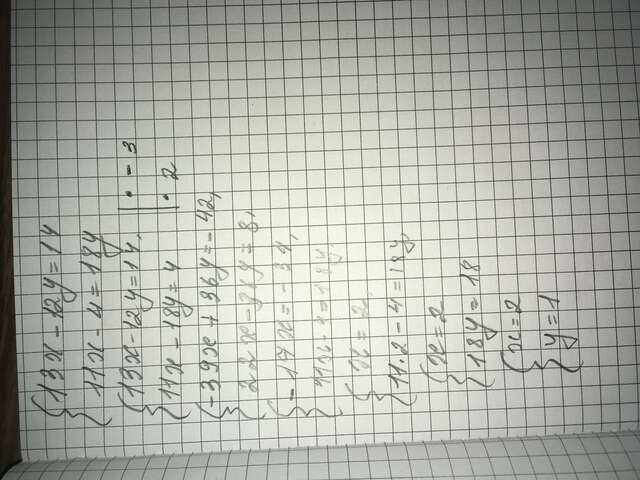 {13x - 12y = 14
11x - 4 = 18y
{13x - 12y = 14, | · -3
11x - 18y = 4 | · 2
{-39x + 36y = -42,
22x - 36y = 8,
{-17x = -34,
11x - 4 = 18y,
{x = 2,
11·2 - 4 = 18y,
{x = 2
18y = 18
{x = 2
y = 1